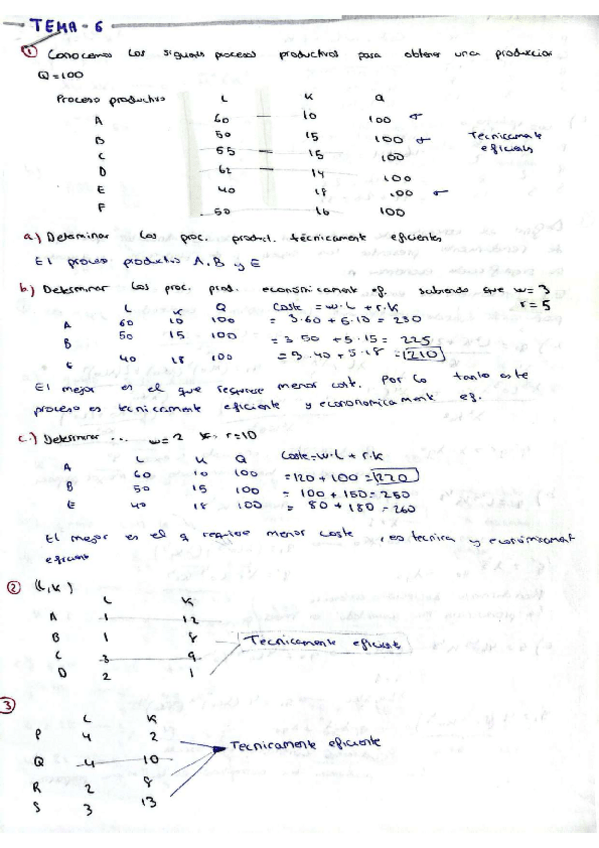 TEMA-6
① Conocemos los siguients procesos productivos para obtener una produccion
Q=100
Proceso productivo L K Q
A 60 10 100
B 50 15 100 Tecnicamente eficients
C 55 15 100
D 62 14 100
E 40 18 100
F 50 16 100
a) Determinar los proc. product. técnicamente eficientes
El proceso productivo A, B y E
b) Determinar los proc. prod. económicamente ef. sabiendo que w=3
r=5
L K Q Coste = w·L + r·K
A 60 10 100 = 3·60 + 5·10 = 230
B 50 15 100 = 3 50 + 5·15 = 225
E 40 18 100 = 3·40 + 5·18 = 210
El mejor es el que requiere menor coste. Por lo tanto este
proceso es tecnicamente eficiente y economicamente ef.
c.) Determinar ... w=2 r=10
L K Q Coste=w·L + r·K
A 60 10 100 = 120 + 100 = 220
B 50 15 100 = 100 + 150 = 250
E 40 18 100 = 80 + 180 = 260
El mejor es el q requiere menor coste, es tecnica y económicament
eficient
② (L,K)
L K
A 1 12
B 1 8 Tecnicamente eficient
C 3 9
D 2 1
3
L K
P 4 2 Tecnicamente eficiente
Q 4 10
R 2 8
S 3 13